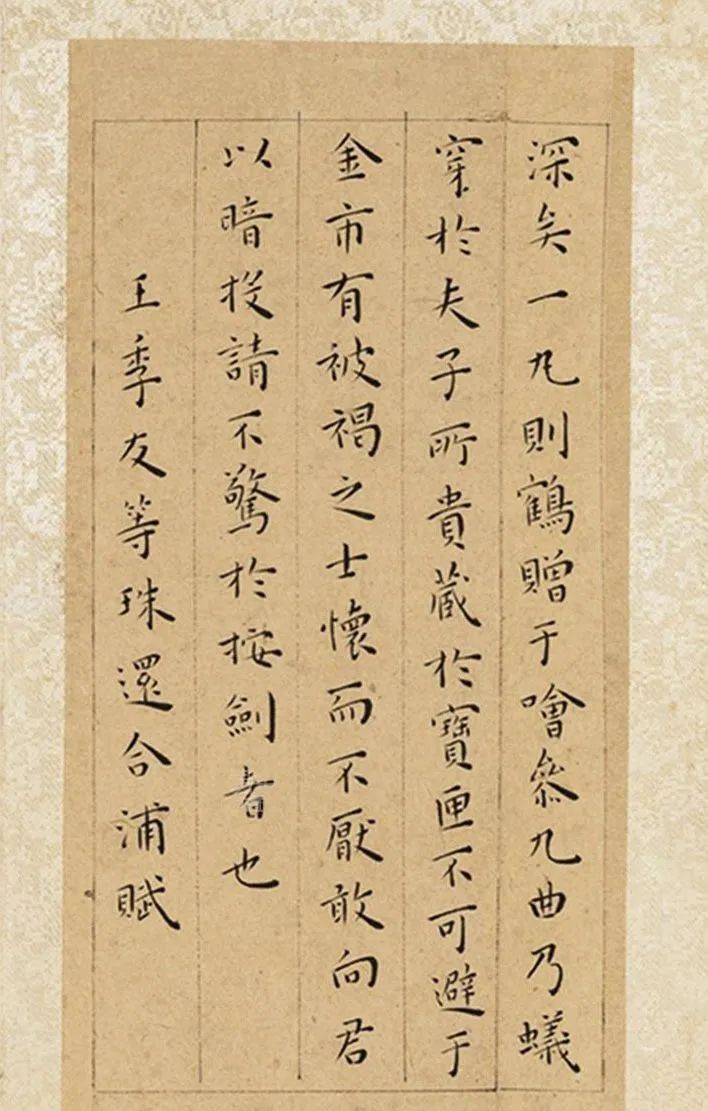 深矣一九則鶴贈于噲參九曲乃蟻
穿於夫子所貴藏於寶匣不可避于
金市有被褐之士懷而不厭敢向君
以暗投請不驚於按劍者也
王季友等珠還合浦賦